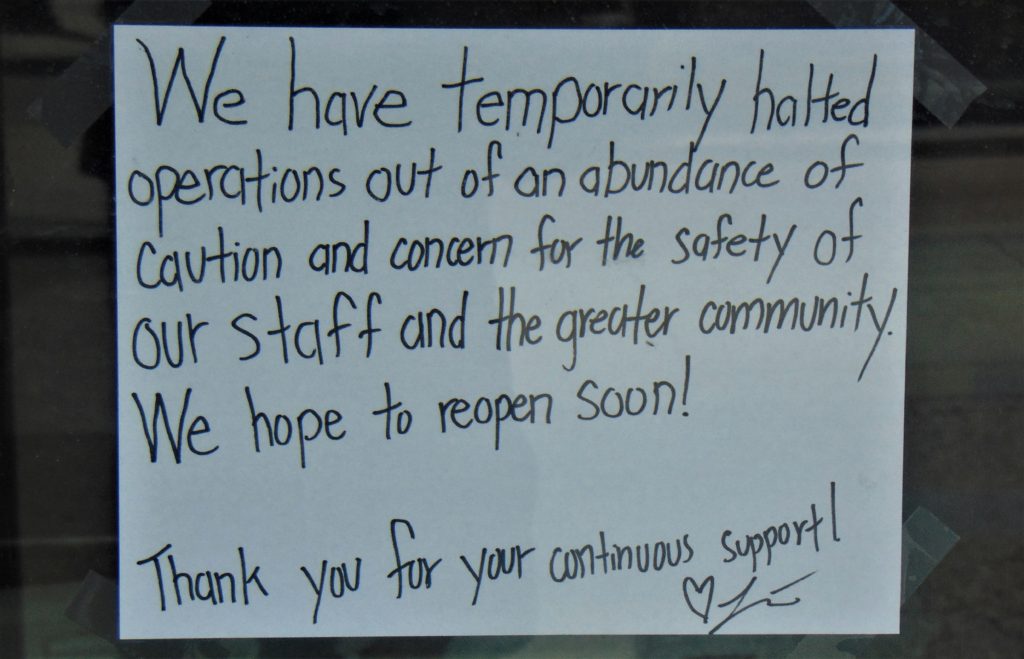 We have temporarily halted
operations out of an abundance of
caution and concern for the safety of
our staff and the greater community.
We hope to reopen soon!
Thank you for your continuous support!
♡